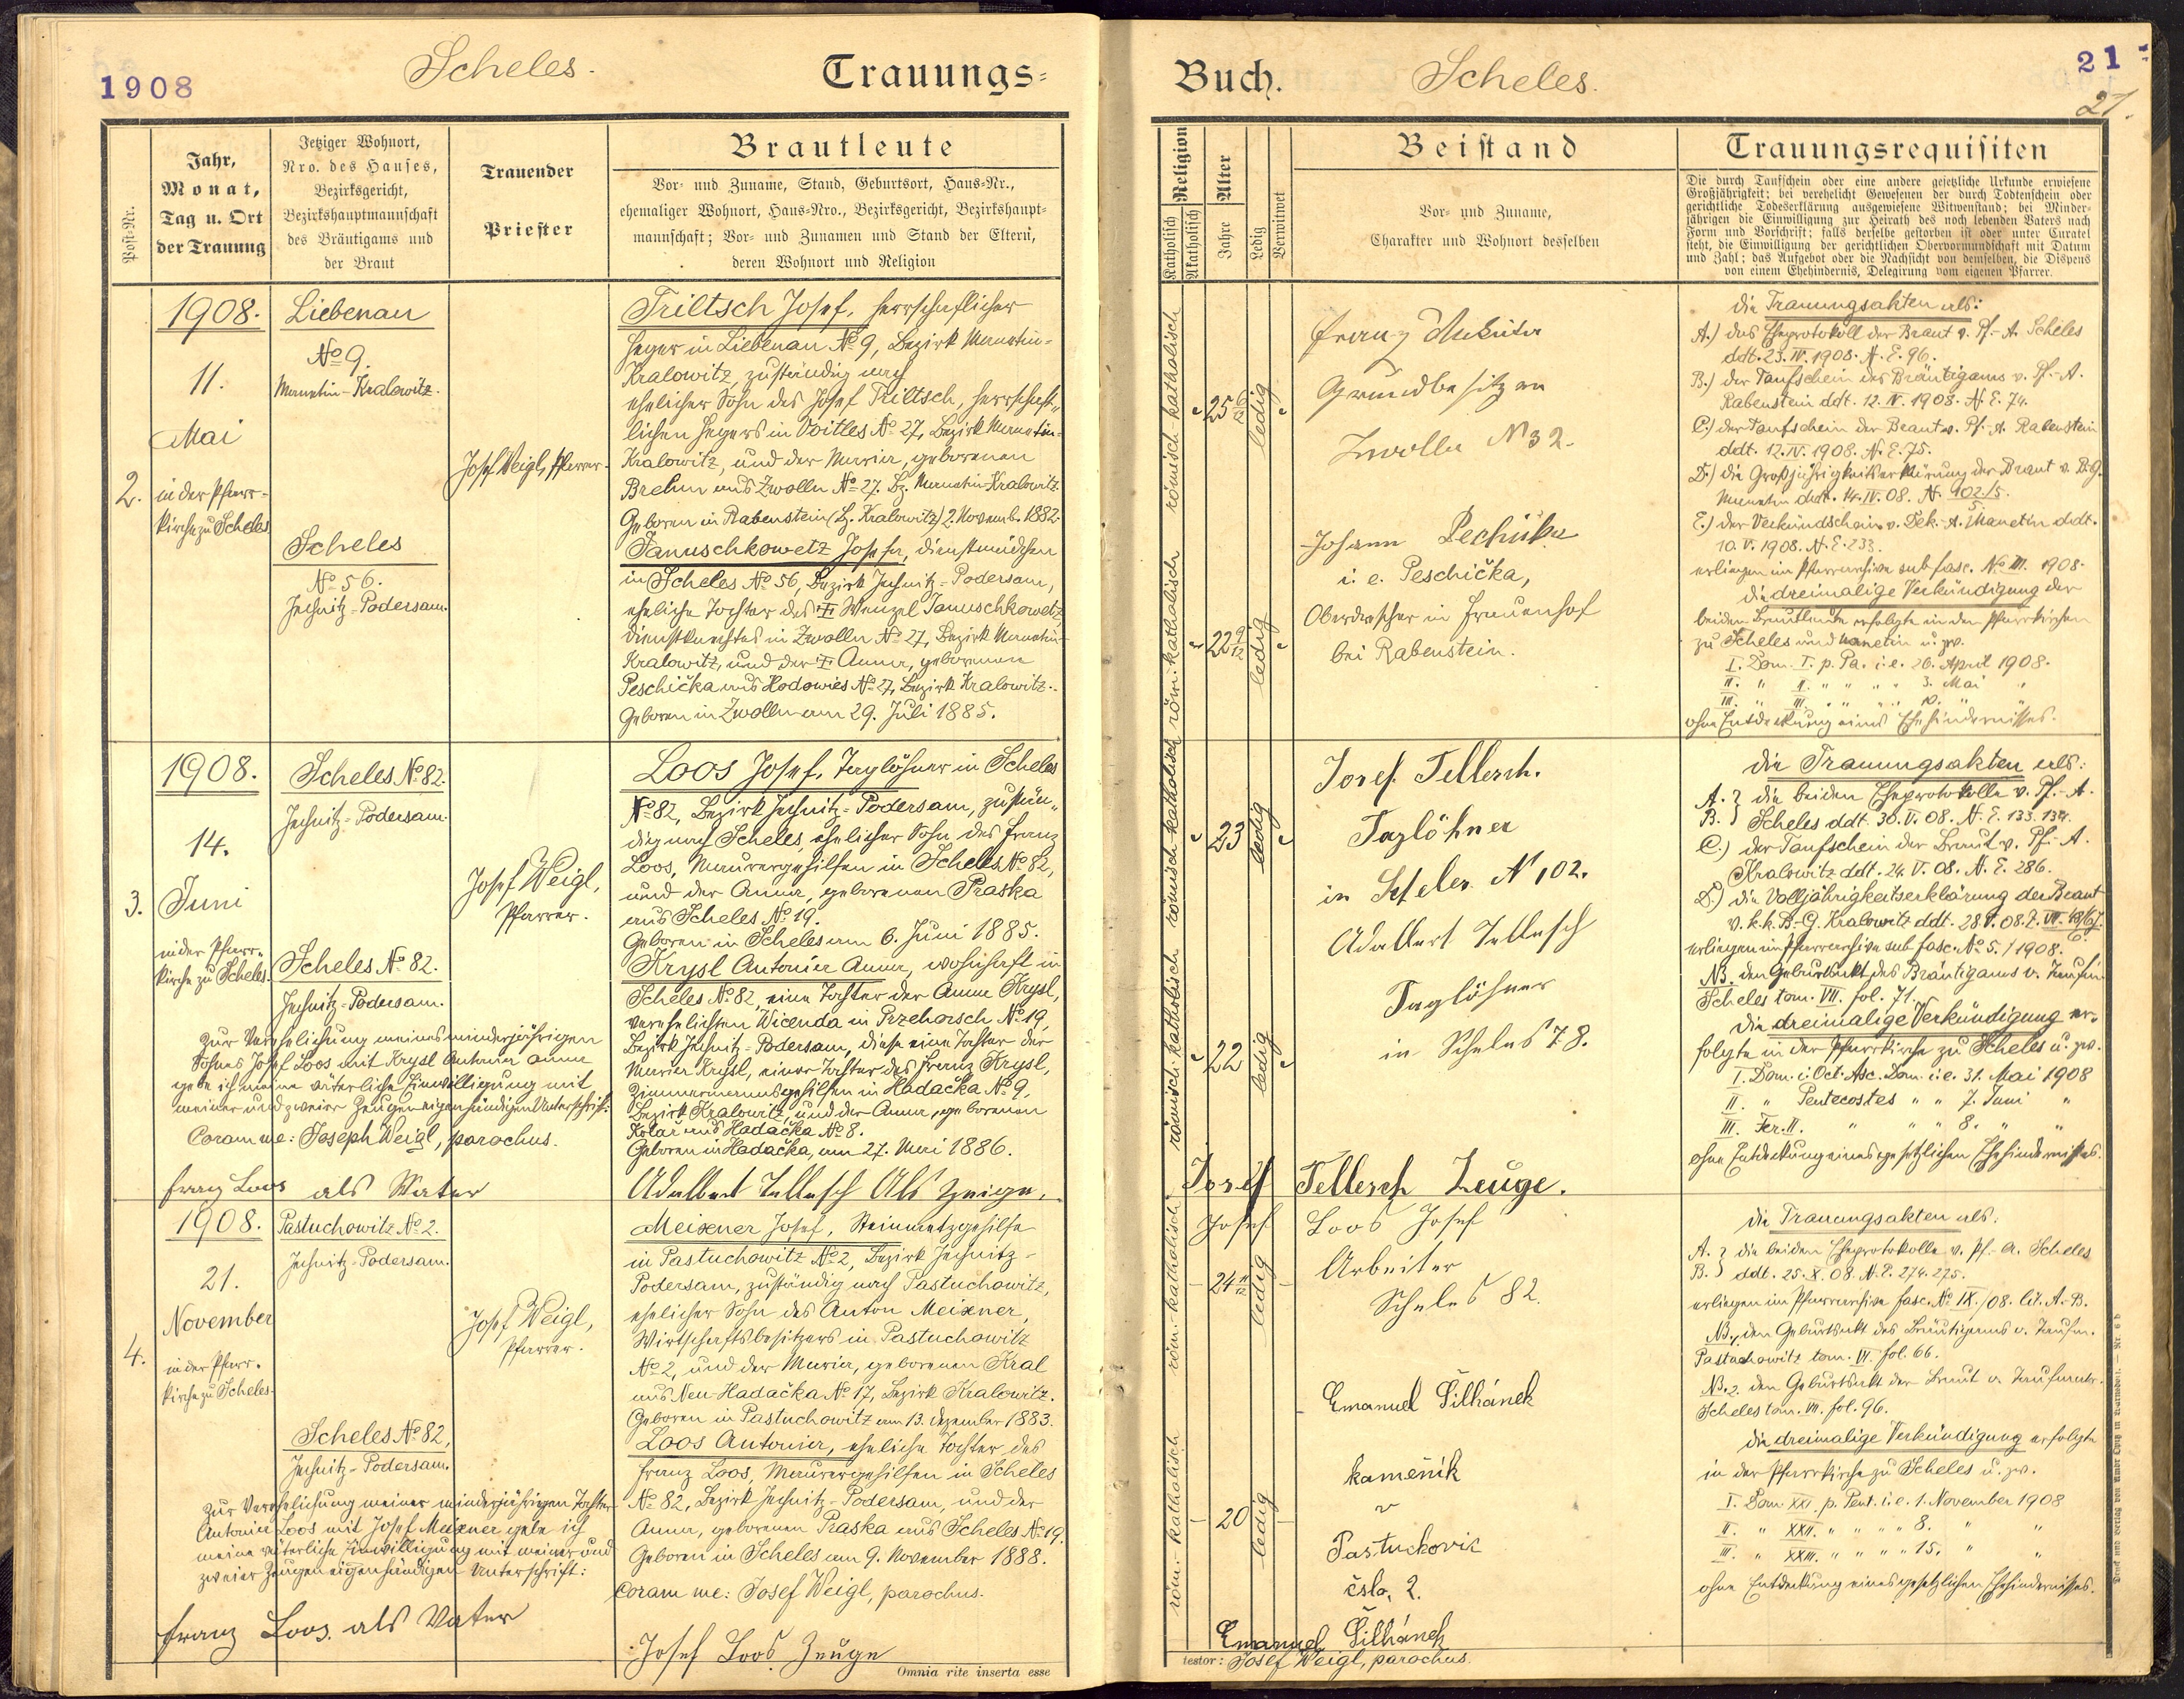 1908
Scheles.
Trauungs-
Post-Nr.
Jahr,
Monat,
Tag u. Ort
der Trauung
Jetziger Wohnort,
Nro. des Hauses,
Bezirksgericht,
Bezirkshauptmannschaft
des Bräutigams und
der Braut
Trauender
Priester
Brautleute
Vor- und Zuname, Stand, Geburtsort, Haus-Nr.,
ehemaliger Wohnort, Haus-Nro., Bezirksgericht, Bezirkshaupt-
mannschaft; Vor- und Zunamen und Stand der Eltern,
deren Wohnort und Religion
2.
1908.
11.
Mai
in der Pfarr-
kirche zu Scheles
Liebenau
No 9.
Manetin-Kralowitz.
Scheles
No 56.
Jechnitz-Podersam.
Josef Weigl, Pfarrer.
Triltsch Josef, herrschaftlicher
Heger in Liebenau No 9, Bezirk Manetin-
Kralowitz, zuständig nach
ehelicher Sohn des Josef Triltsch, herrschaft-
lichen Hegers in Voitles No 27, Bezirk Manetin-
Kralowitz, und der Maria, geborenen
Brehm aus Zwolln No 27. Bz. Manetin-Kralowitz.
Geboren in Rabenstein (Bz. Kralowitz) 2. Novemb. 1882.
Januschkowetz Josefa, Dienstmädchen
in Scheles No 56, Bezirk Jechnitz-Podersam,
eheliche Tochter des † Wenzel Januschkowetz,
Dienstknechtes in Zwolln No 27, Bezirk Manetin-
Kralowitz, und der † Anna, geborenen
Peschička aus Hodowies No 27, Bezirk Kralowitz.
Geboren in Zwolln am 29. Juli 1885.
3.
1908.
14.
Juni
in der Pfarr-
kirche zu Scheles.
Scheles No 82.
Jechnitz-Podersam.
Scheles No 82.
Jechnitz-Podersam.
Josef Weigl,
Pfarrer.
Loos Josef, Taglöhner in Scheles
No 82, Bezirk Jechnitz-Podersam, zustän-
dig nach Scheles, ehelicher Sohn des Franz
Loos, Maurergehilfen in Scheles No 82,
und der Anna, geborenen Praska
aus Scheles No 19.
Geboren in Scheles am 6. Juni 1885.
Krysl Antonia Anna, wohnhaft in
Scheles No 82, eine Tochter der Anna Krysl,
verehelichten Wicenda in Przehorsch No 19,
Bezirk Jechnitz-Podersam, diese eine Tochter der
Maria Krysl, einer Tochter des Franz Krysl,
Zimmermannsgehilfen in Hadačka No 9,
Bezirk Kralowitz, und der Anna, geborenen
Kolař aus Hadačka No 8.
Geboren in Hadačka, am 27. Mai 1886.
Zur Verehelichung meines minderjährigen
Sohnes Josef Loos mit Krysl Antonia Anna
gebe ich meine väterliche Einwilligung mit
meiner und zweier Zeugen eigenhändigen Unterschrift:
Coram me: Joseph Weigl, parochus.
Franz Loos als Vater
Adalbert Tellesch Als Zeige.
4.
1908.
21.
November
in der Pfarr-
kirche zu Scheles.
Pastuchowitz No 2.
Jechnitz-Podersam.
Scheles No 82,
Jechnitz-Podersam.
Josef Weigl,
Pfarrer.
Meixner Josef, Steinmetzgehilfe
in Pastuchowitz No 2, Bezirk Jechnitz-
Podersam, zuständig nach Pastuchowitz,
ehelicher Sohn des Anton Meixner,
Wirtschaftsbesitzers in Pastuchowitz
No 2, und der Maria, geborenen Kral
aus Neu-Hadačka No 17, Bezirk Kralowitz.
Geboren in Pastuchowitz am 13. Dezember 1883.
Loos Antonia, eheliche Tochter des
Franz Loos, Maurergehilfen in Scheles
No 82, Bezirk Jechnitz-Podersam, und der
Anna, geborenen Praska aus Scheles No 19.
Geboren in Scheles am 9. November 1888.
Coram me: Josef Weigl, parochus.
Zur Verehelichung meiner minderjährigen Tochter
Antonia Loos mit Josef Meixner gebe ich
meine väterliche Einwilligung mit meiner und
zweier Zeugen eigenhändigen Unterschrift:
Franz Loos. als Vater
Josef Loos Zeuge
Omnia rite inserta esse
Buch.
Scheles.
21
21.
Religion
Katholisch
Akatholisch
Alter
Jahre
Ledig
Verwitwet
Beistand
Vor- und Zuname,
Charakter und Wohnort desselben
Trauungsrequisiten
Die durch Taufschein oder eine andere gesetzliche Urkunde erwiesene
Großjährigkeit; bei verehelicht Gewesenen der durch Todtenschein oder
gerichtliche Todeserklärung ausgewiesene Witwenstand; bei Minder-
jährigen die Einwilligung zur Heirath des noch lebenden Vaters nach
Form und Vorschrift; falls derselbe gestorben ist oder unter Curatel
steht, die Einwilligung der gerichtlichen Obervormundschaft mit Datum
und Zahl; das Aufgebot oder die Nachsicht von demselben, die Dispens
von einem Ehehindernis, Delegirung vom eigenen Pfarrer.
römisch-katholisch
25 6/12
ledig
röm: katholisch
22 9/12
ledig
Franz
Grundbesitzer
Zwolln No 32.
Johann Pechička
i. e. Peschička,
Oberdrescher in Frauenhof
bei Rabenstein.
die Trauungsakten als:
A.) das Eheprotokoll der Braut v. Pf.-A. Scheles
ddt. 23. IV. 1908. N. E. 96.
B.) der Taufschein des Bräutigams v. Pf.-A.
Rabenstein ddt. 12. IV. 1908. N. E. 74.
C.) der Taufschein der Braut v. Pf.-A. Rabenstein
ddt. 12. IV. 1908. N. E. 75.
D.) die Großjährigkeitserklärung der Braut v. B.-G.
Manetin ddt. 14. IV. 08. N. 102/5.
E.) der Verkündschein v. Dek.-A. Manetin ddt.
10. V. 1908. N. E. 233.
erliegen im Pfarrarchive sub fasc. No III. 1908.
die dreimalige Verkündigung der
beiden Brautleute erfolgte in den Pfarrkirchen
zu Scheles und Manetin u. zw.
I. Dom. I. p. Pa. i. e. 26. April 1908.
II. " II. " " " " 3. Mai "
III. " III. " " " " 10. " "
ohne Entdeckung eines Ehehindernisses.
römisch-katholisch
23
ledig
römisch-katholisch
22
ledig
Josef Tellesch.
Taglöhner
in Scheles N 102.
Adalbert Tellesch
Taglöhner
in Scheles 78.
die Trauungsakten als:
A. } die beiden Eheprotokolle v. Pf.-A.
B. } Scheles ddt. 30. V. 08. N. E. 133. 134.
C.) der Taufschein der Braut v. Pf.-A.
Kralowitz ddt. 24. V. 08. N. E. 286.
D.) die Volljährigkeitserklärung der Braut
v. k. k. B.-G. Kralowitz ddt. 28. V. 08.
erliegen im Pfarrarchive sub fasc. No 5. / 1908.
NB. den Geburtsakt des Bräutigams v. Taufm.
Scheles tom. VII. fol. 71.
die dreimalige Verkündigung er-
folgte in der Pfarrkirche zu Scheles u. zw.
I. Dom. i. Oct. Asc. Dom. i. e. 31. Mai 1908
II. " Pentecostes " " 7. Juni "
III. Fer. II. " " " 8. " "
ohne Entdeckung eines gesetzlichen Ehehindernisses.
Josef Tellesch Zeuge.
röm.-katholisch
24 11/12
ledig
röm.-katholisch
20
ledig
Josef Loos Josef
Arbeiter
Scheles 82.
Emanuel Šilhánek
kameník
v
Pastuchovic
čslo. 2.
Emanuel Šilhánek
die Trauungsakten als:
A. } die beiden Eheprotokolle v. Pf.-A. Scheles
B. } ddt. 25. X. 08. N. E. 274. 275.
erliegen im Pfarrarchive fasc. No IX. /08. lit. A. B.
NB. 1. den Geburtsakt des Bräutigams v. Taufm.
Pastuchowitz tom. VI. fol. 66.
NB. 2. den Geburtsakt der Braut v. Taufmatr.
Scheles tom. VII. fol. 96.
die dreimalige Verkündigung erfolgte
in der Pfarrkirche zu Scheles u. zw.
I. Dom. XXI. p. Pent. i. e. 1. November 1908
II. " XXII. " " " " 8. " "
III. " XXIII. " " " " 15. " "
ohne Entdeckung eines gesetzlichen Ehehindernisses.
testor: Josef Weigl, parochus.